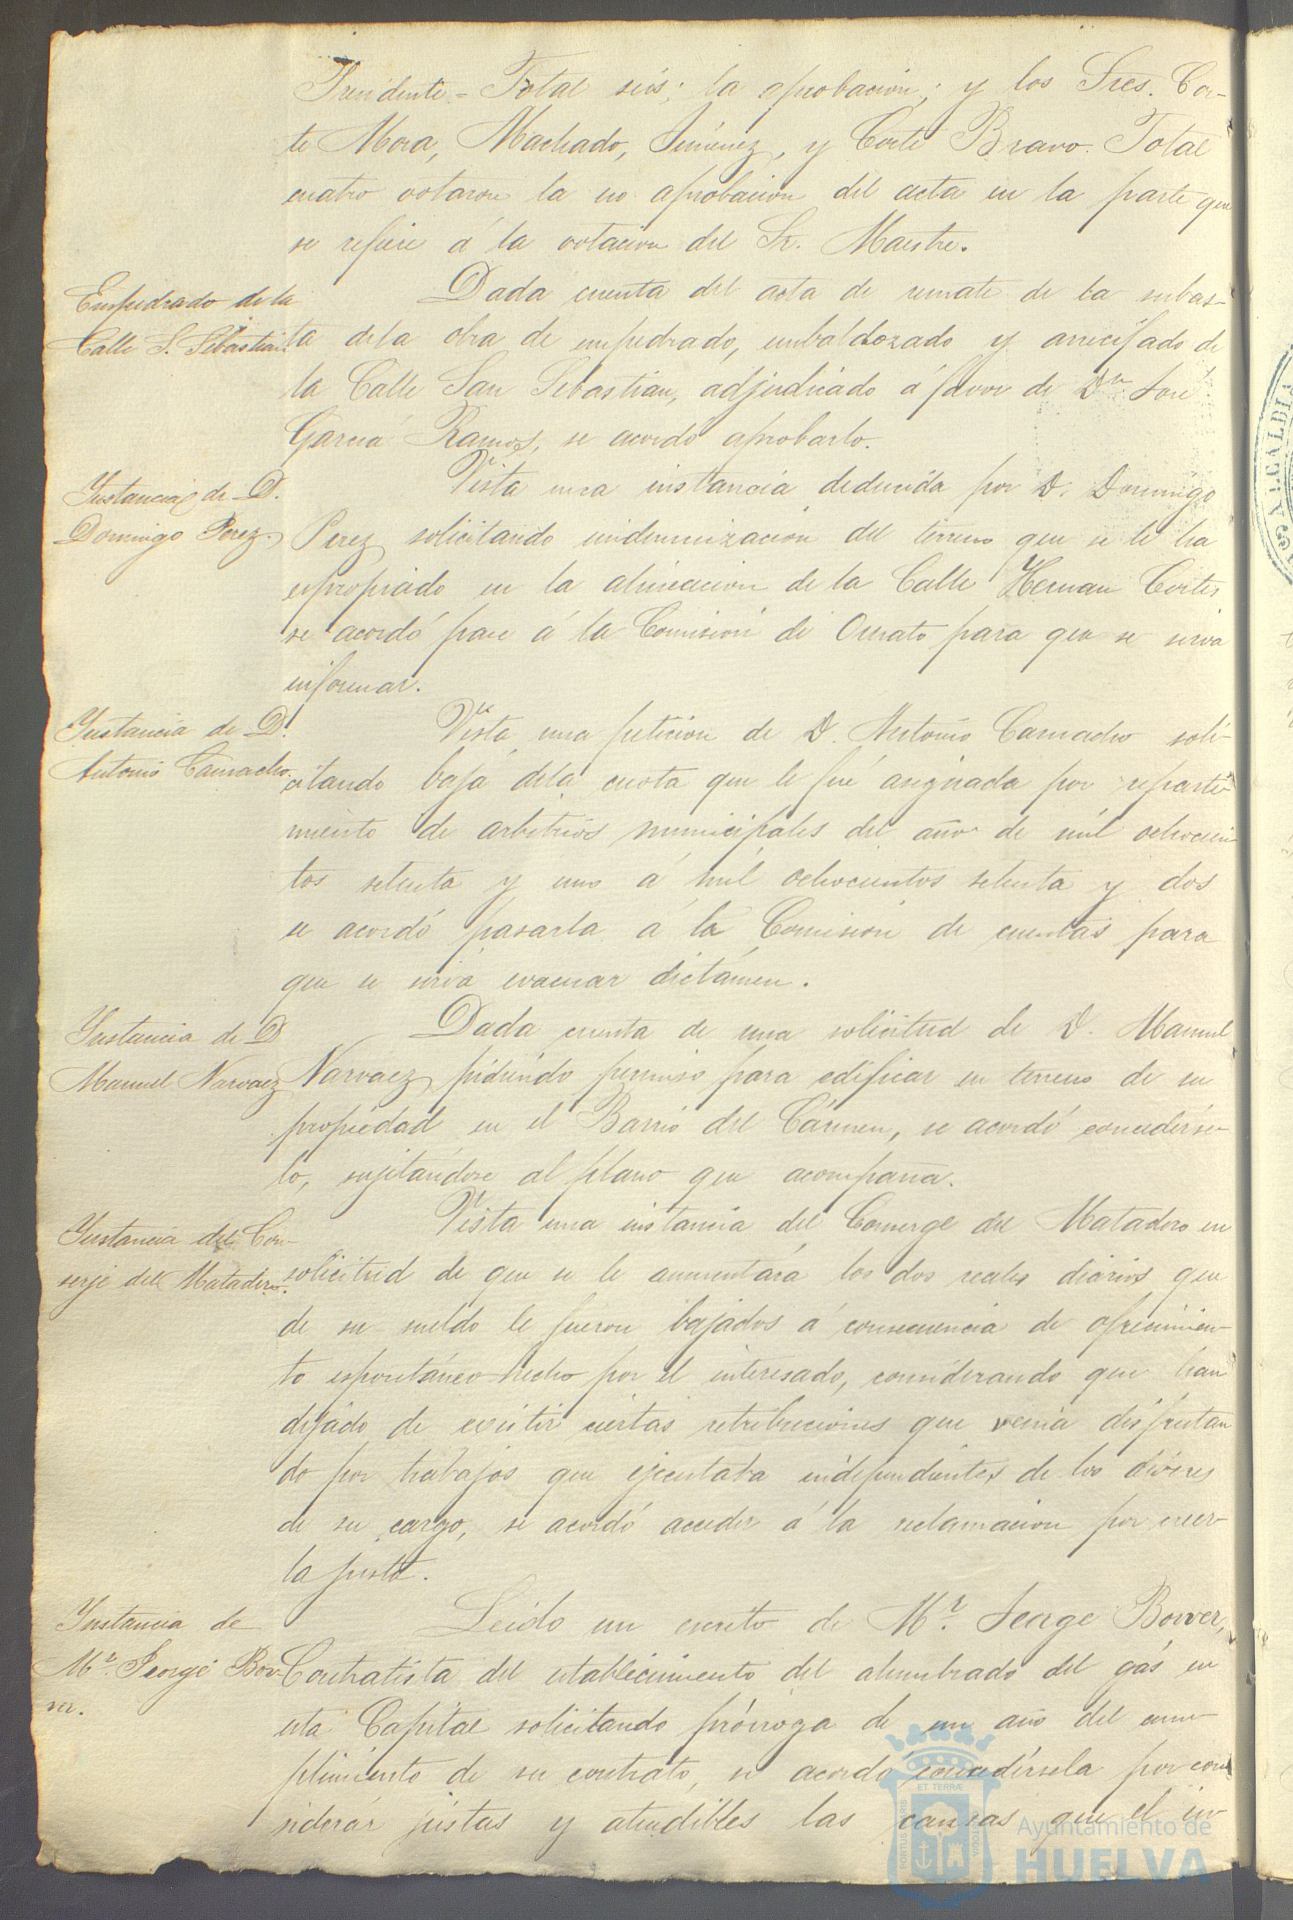 Presidente = Total seis; la aprobacion; y los Sres. Cor-
te Mora, Machado, Jimenez, y Corte Bravo. Total
cuatro votaron la no aprobacion del acta en la parte que
se refiere á la votacion del Sr. Maestre.
Empedrado de la
Calle S. Sebastian.
Dada cuenta del acta de remate de la subas-
ta dela obra de empedrado, embaldozado y arrecifado de
la Calle San Sebastian, adjudicado á favor de Dn José
Garcia Ramos, se acordó aprobarlo.
Instancia de D.
Domingo Perez.
Vista una instancia deducida por D. Domingo
Perez solicitando indemnizacion del terreno que se le ha
espropiado en la alineacion de la Calle Hernan Cortes
se acordó pase á la Comision de Ornato para que se sirva
informar.
Instancia de D.
Antonio Camacho.
Vista una peticion de D. Antonio Camacho soli-
citando baja dela cuota que le fué asignada por reparti-
miento de arbitrios municipales del año de mil ochocien-
tos setenta y uno á mil ochocientos setenta y dos
se acordó pasarla á la Comision de cuentas para
que se sirva evacuar dictámen.
Instancia de D
Manuel Narvaez
Dada cuenta de una solicitud de D. Manuel
Narvaez pidiendo permiso para edificar en terreno de su
propiedad en el Barrio del Cármen, se acordó concedérse-
lo, sujetándose al plano que acompaña.
Instancia del Con-
serje del Matadero.
Vista una instancia del Conserge del Matadero en
solicitud de que se le aumentára los dos reales diarios que
de su sueldo le fueron bajados á consecuencia de ofrecimien-
to espontáneo hecho por el interesado, considerando que han
dejado de existir ciertas retribuciones que venia disfrutan
do por trabajos que ejecutaba independientes de los deberes
de su cargo, se acordó acceder á la reclamacion por creer-
la justa.
Instancia de
Mr. George Bow-
er.
Leido un escrito de Mr. George Bower,
Contratista del establecimiento del alumbrado del gás en
esta Capital solicitando prórroga de un año del cum-
plimiento de su contrato, se acordó concedérsela por con
siderar justas y atendibles las causas que el in-
Ayuntamiento de
HUELVA
PORTUS MARIS
ET TERRÆ
CUSTODIA
ALCALDIA